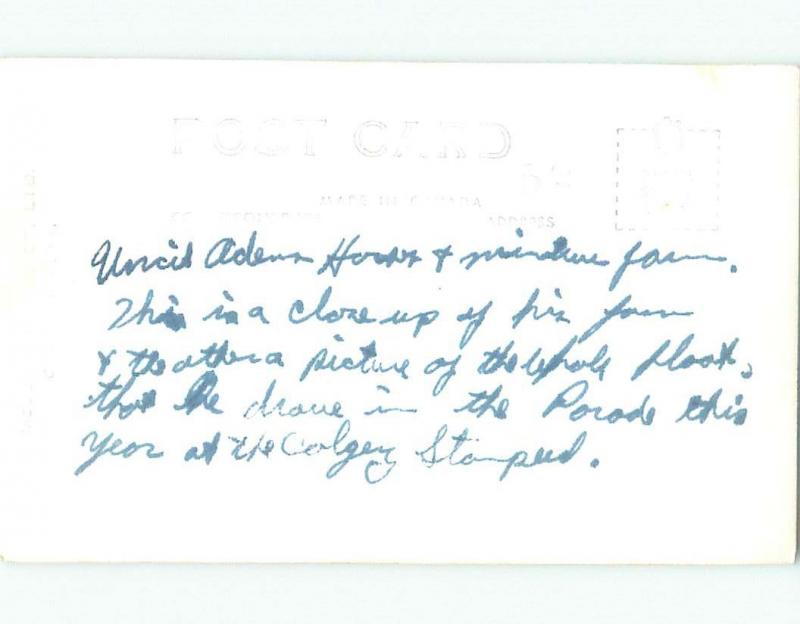 POST CARD
MADE IN CANADA
ADDRESS
Uncil Adams Horses & miniture farm.
This is a close up of his farm
& the other a picture of the whole float,
that he drove in the Parade this
Year at the Calgey Stampeed.